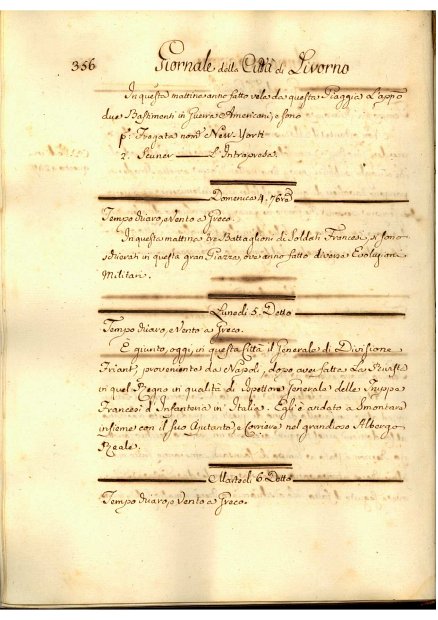 356 Giornale della Città di Livorno
In questa mattina anno fatto vela da questa Piaggia L'appo
due Bastimenti in Guerra Americani, e sono
p.: Fregata nom.ᵉ New-York
2. Scuner —— L'Intrapresa.
Domenica 4. 76re
Tempo chiaro, e Vento a Greco.
In questa mattina tre Battaglioni di Soldati Francesi, si sono
schierati in questa gran Piazza, ove anno fatto diverse Evoluzioni
Militari.
Lunedì 5. Detto
Tempo chiaro, e Vento a Greco.
È giunto, oggi, in questa Città il Generale di Divisione
Friant, proveniente da Napoli, dopo aver fatta La Rivista
in quel Regno in qualità di Ispettore Generale delle Truppe
Francesi d'Infanteria in Italia. Egli è andato a Smontare
insieme con il suo Ajutante, e Corriere nel grandioso Albergo
Reale.
Martedì 6. Detto
Tempo chiaro, e Vento a Greco.